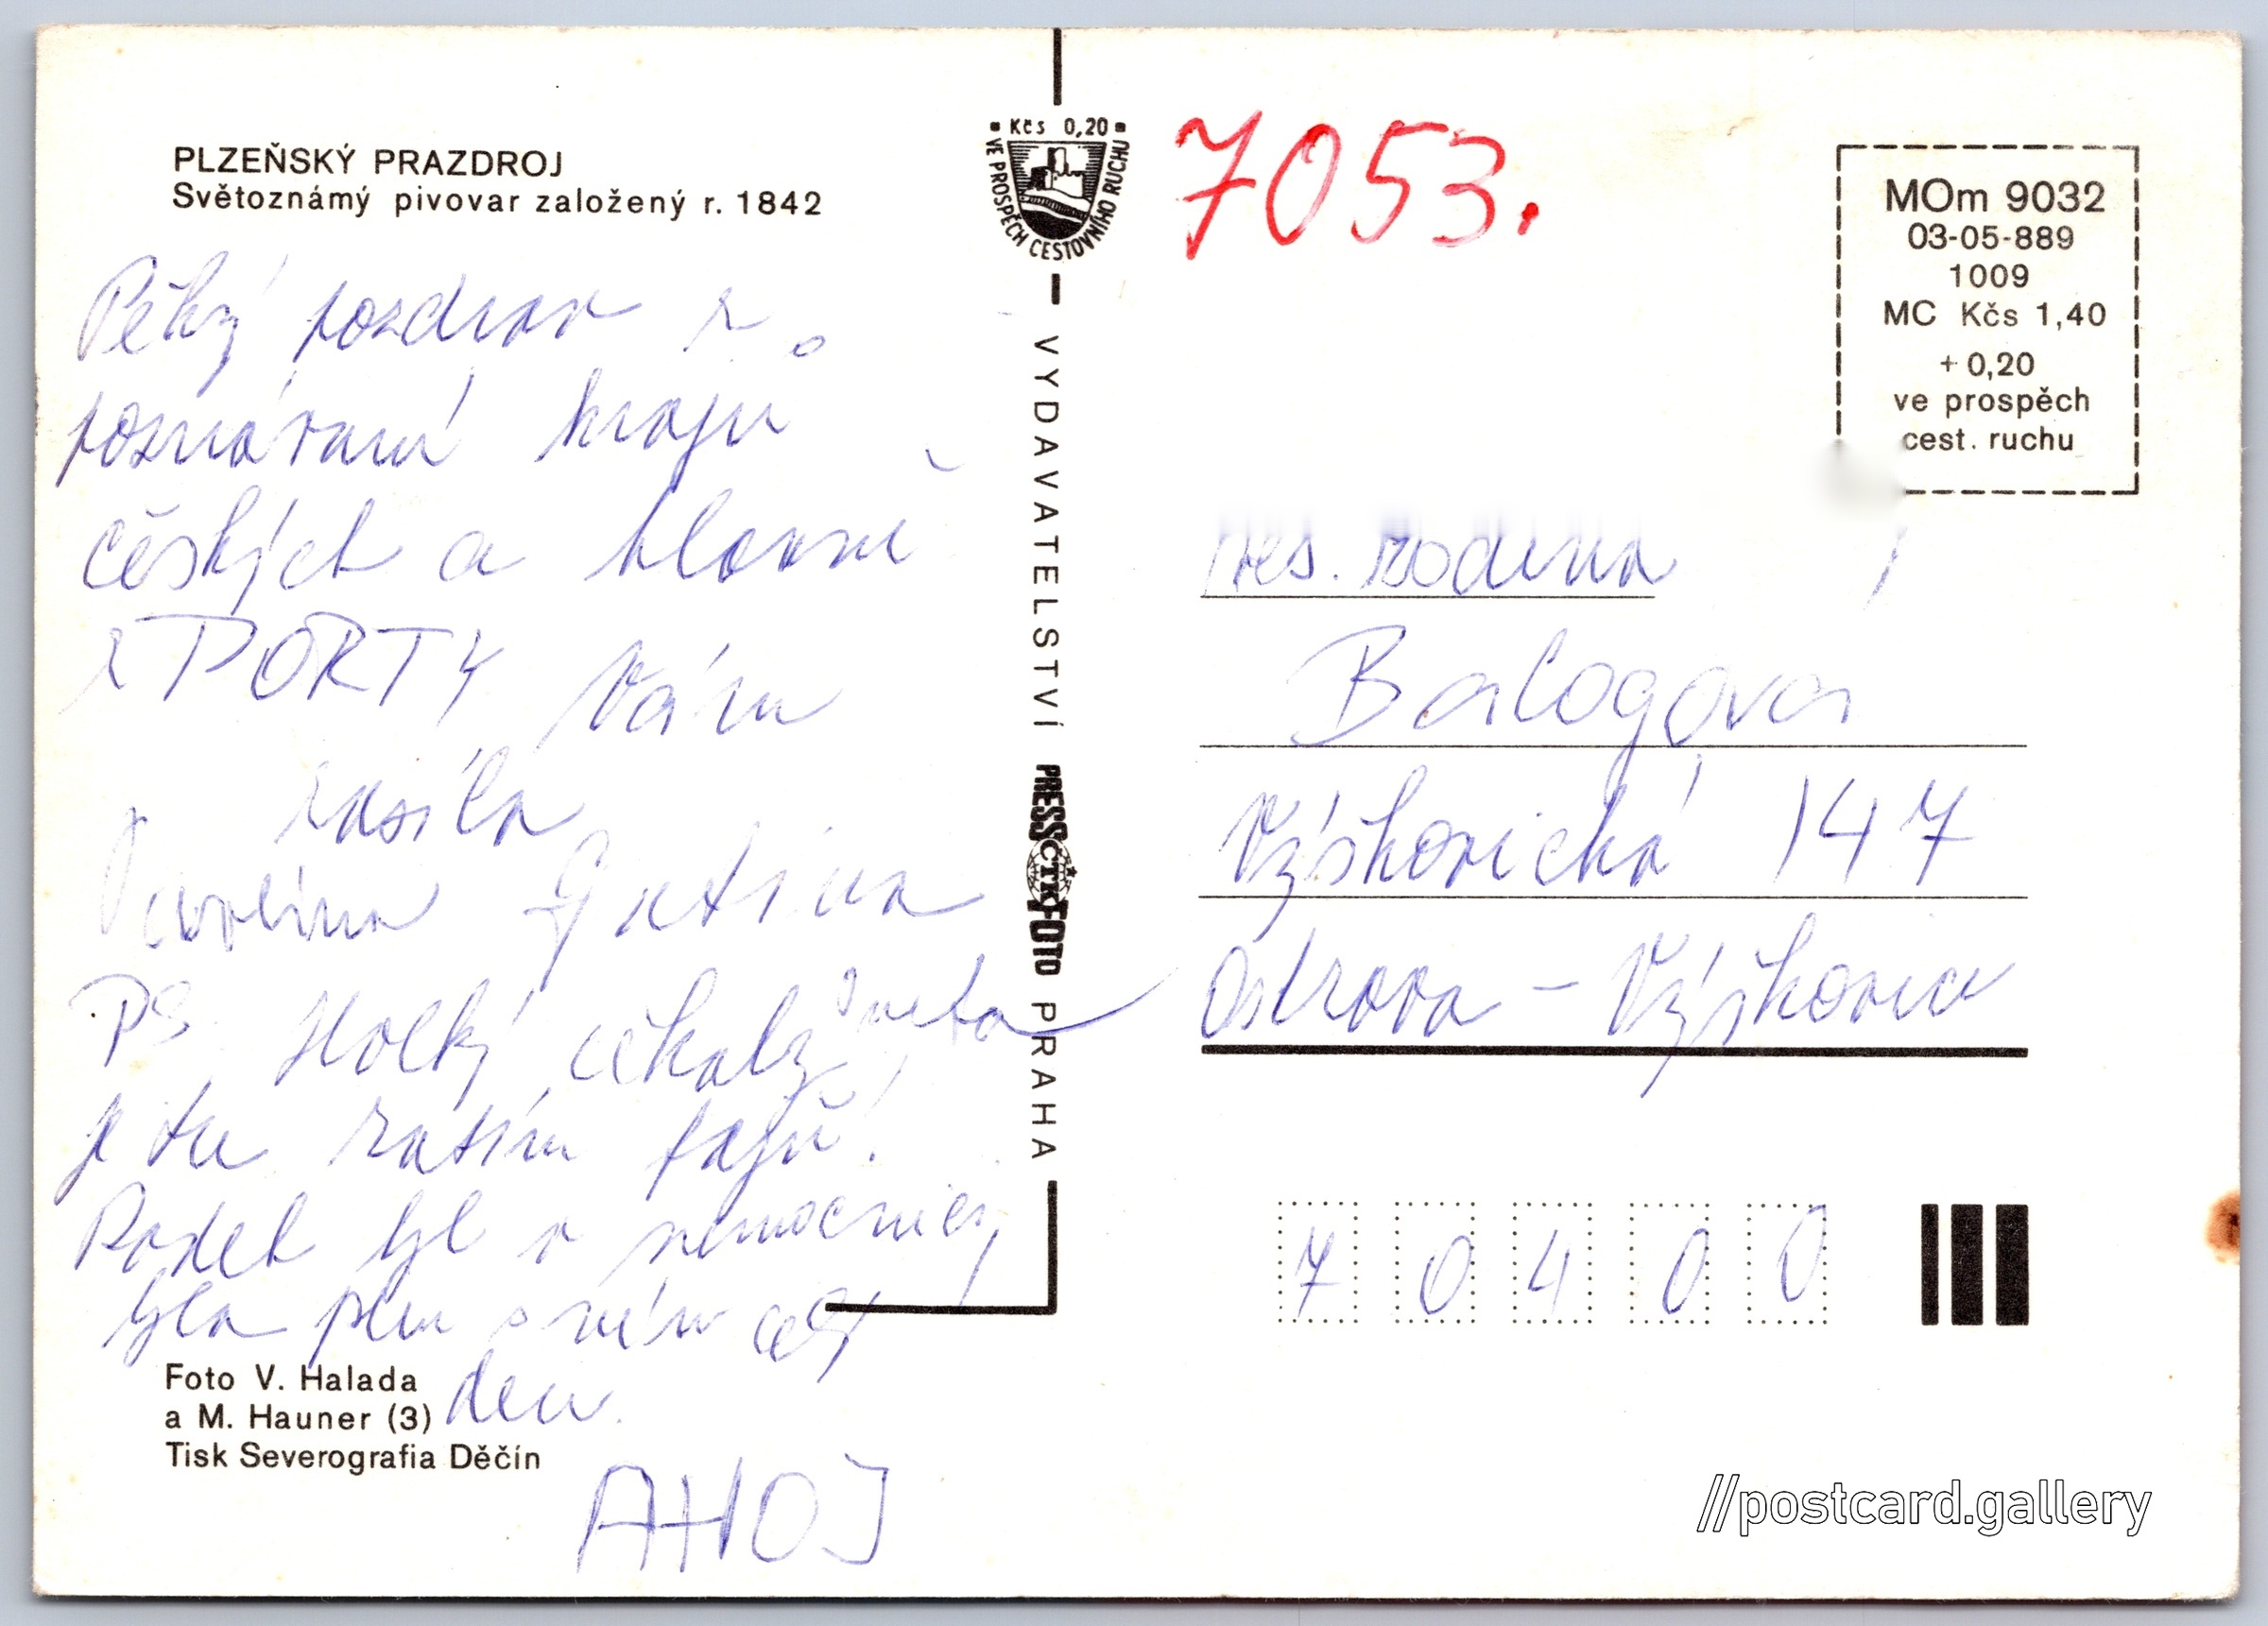 PLZEŇSKÝ PRAZDROJ
Světoznámý pivovar založený r. 1842
Pěkný pozdrav z
poznávaní krajů
českých a hlavně
z PORTY Vám
zasíla
PS Holky čekaly
je tu zatím fajn!
Radek byl v nemocnici,
byla jsem s ním celý
den.
AHOJ
Foto V. Halada
a M. Hauner (3)
Tisk Severografia Děčín
Kčs 0,20
VE PROSPĚCH CESTOVNÍHO RUCHU
VYDAVATELSTVÍ PRESSFOTO PRAHA
ČTK
7053.
MOm 9032
03-05-889
1009
MC Kčs 1,40
+ 0,20
ve prospěch
cest. ruchu
Ves. rodina
Balogova
Výškovická 147
Ostrava - Výškovice
70400
//postcard.gallery